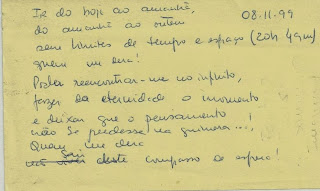 Ir do hoje ao amanhã, 08-11-99
do amanhã ao ontem
sem limites de tempo e espaço (20h 49m)
quem me dera!
Poder reencontrar-me no infinito,
fazer da eternidade o momento
e deixar que o pensamento
não se perdesse na quimera...,!
Quem me dera
Sair deste compasso de espera!